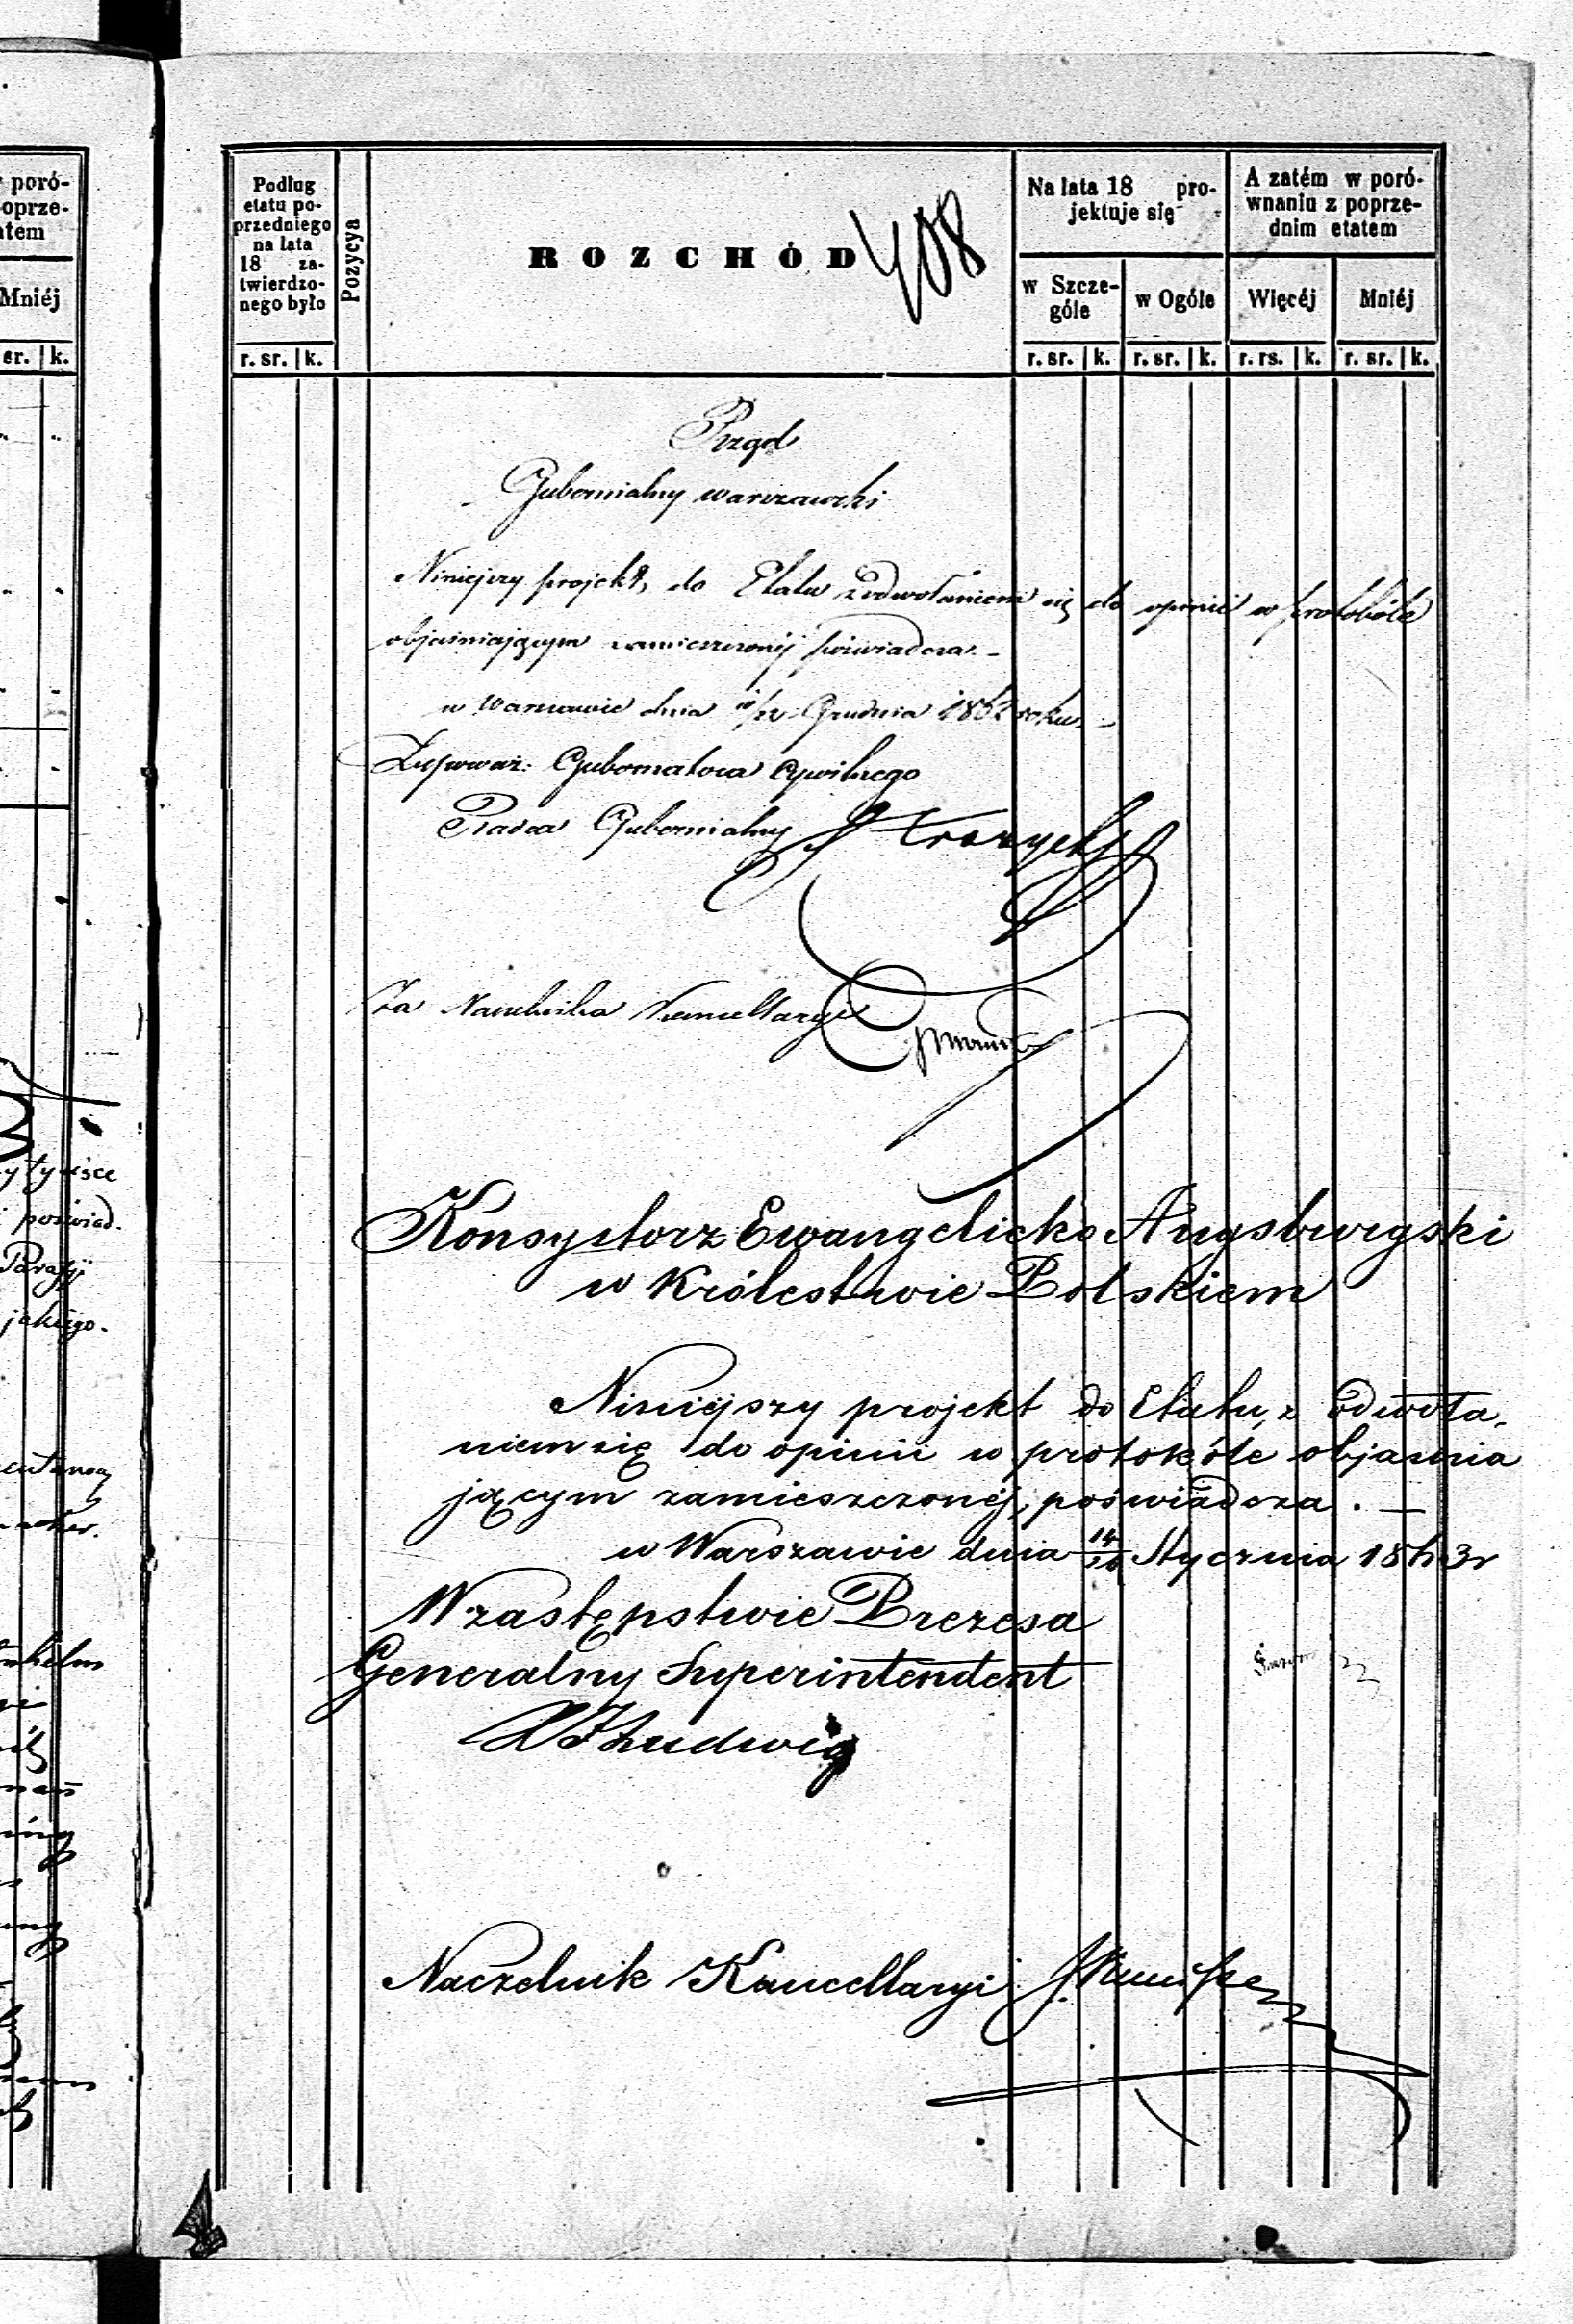 poró-
oprze-
atem
Mniéj
sr. k.
poświad.
Parafji
jakiego.
Podług
etatu po-
przedniego
na lata
18 za-
twierdzo-
nego było
r. sr. k.
Pozycya
ROZCHÓD
408
Na lata 18 pro-
jektuje się
w Szcze-
góle
w Ogóle
r. sr. k. r. sr. k.
A zatém w poró-
wnaniu z poprze-
dnim etatem
Więcéj
Mniéj
r. rs. k. r. sr. k.
Rząd
Gubernialny warszawski
Niniejszy projekt, do Etatu z odwołaniem się do opinii w protokóle
objaśniającym zamieszczonéj poświadcza. -
w Warszawie dnia Grudnia 1862 roku. -
Zupoważ: Gubernatora Cywilnego
Radca Gubernialny
Za Naczelnika Kancellaryi
Konsystorz Ewangelicko Augsburgski
w Królestwie Polskiem
Niniejszy projekt do Etatu, z odwoła-
niem się do opinii w protokóle objaśnia
jącym zamieszczonéj, poświadcza. —
w Warszawie dnia Stycznia 1863 r
W zastępstwie Prezesa
Generalny Superintendent
Ludwig
Naczelnik Kancellaryi